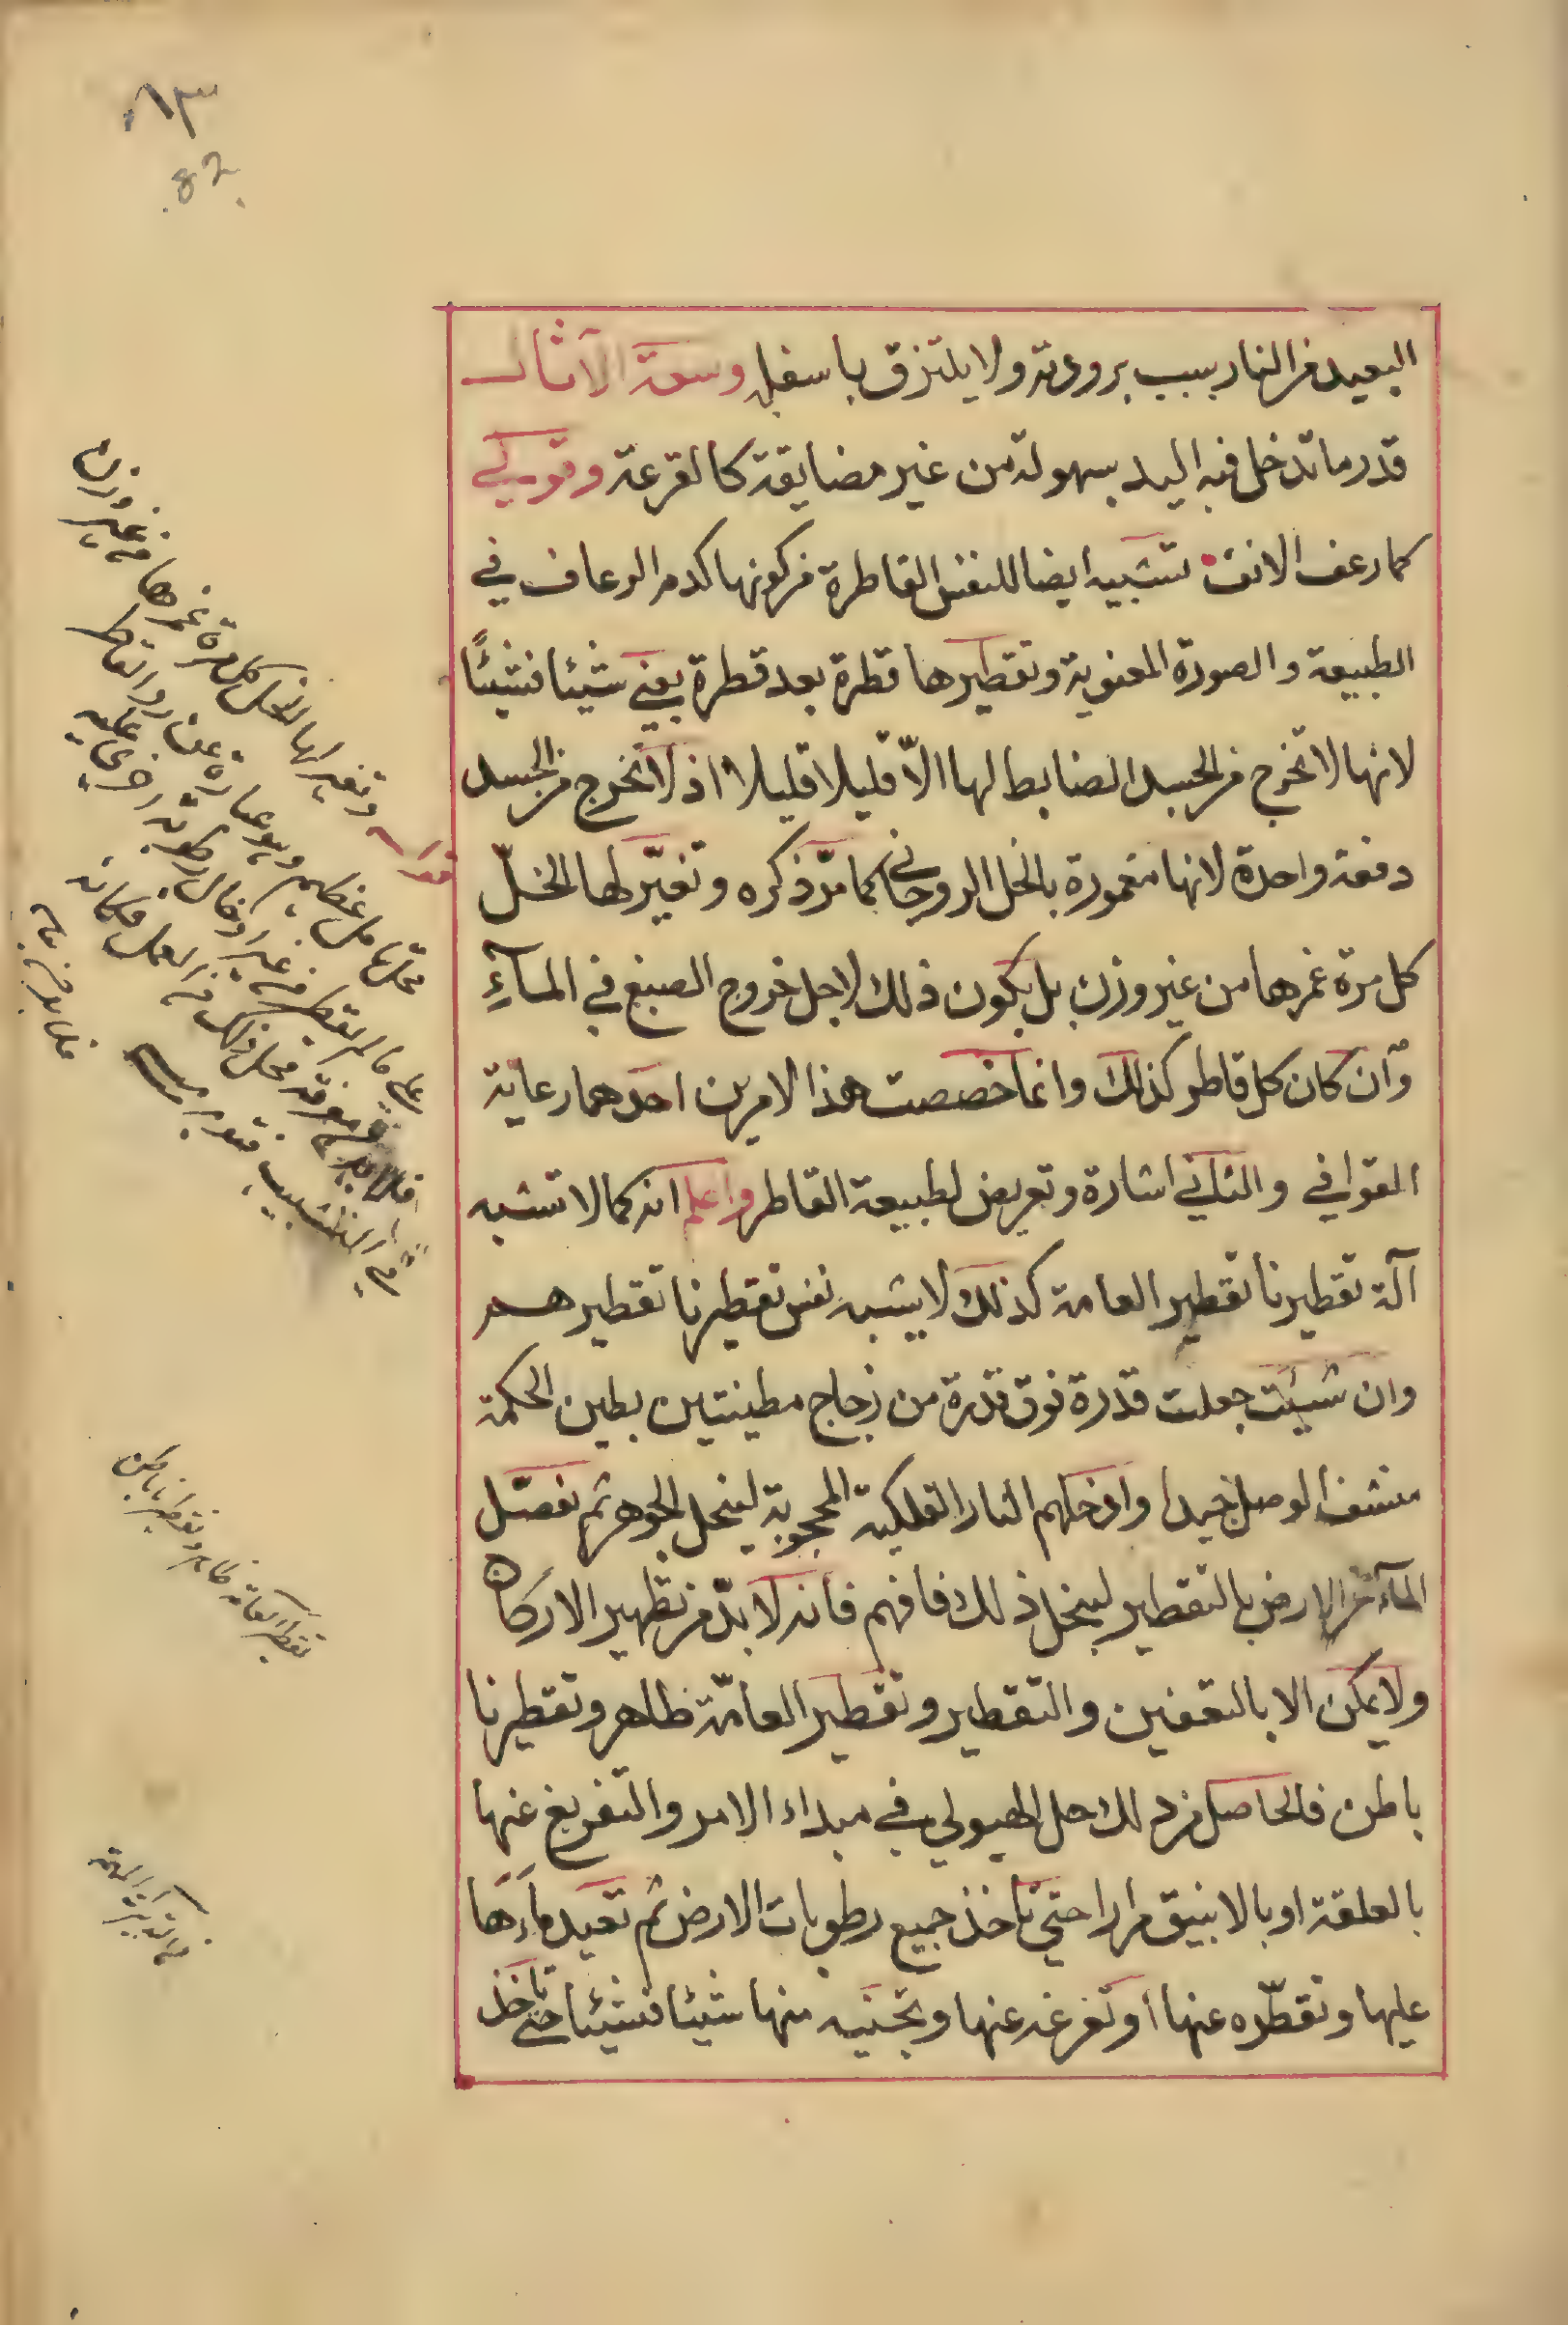 ٨٣
82
البعيد من النار بسبب برودته ولا يلتزق باسفله وسعة الآثال
قدر ما تدخل فيه اليد بسهولة من غير مضايقة كالقرعة وقولي
كما رعف الانف تشبيه ايضا للنفس القاطرة من كونها كدم الرعاف في
الطبيعة والصورة المعنوية وتقطيرها قطرة بعد قطرة يعني شيئا فشيئًا
لانها لا تخرج من الجسد الضابط لها الاّ قليلا قليلا اذ لا تخرج من الجسد
دفعة واحدة لانها مغمورة بالخل الروحاني كما مرّ ذكره وتغيّر لها الخلّ
كل مرة غمرها من غير وزن بل يكون ذلك لاجل خروج الصبغ في المآءِ
وان كان كل قاطر كذلك وانما خصصت هذا لامرين احدهما رعاية
القوافي والثاني اشارة وتعريض لطبيعة القاطر واعلم انه كما لا تشبه
آلة تقطيرنا تقطير العامة كذلك لا يشبه نفس تقطيرنا تقطيرهم
وان شيئت جعلت قدرة فوق قدرة من زجاج مطينتين بطين الحكمة
منشفا الوصل جيدا وادخلهم النار الفلكية المحجوبة لينحل الجوهر ثم تفصّل
المآء من الارض بالتقطير لينحل ذلك فافهم فانه لا بدّ من تطهير الاركان
ولا يمكن الا بالتعفين والتقطير وتقطير العامّة ظاهر وتقطيرنا
باطن فالحاصل من ذلك حل الهيولي في مبداء الامر والتفريغ عنها
بالعلقة او بالانبيق مرارا حتي تاخذ جميع رطوبات الارض ثم تعيد ماءَها
عليها وتقطّره عنها او تفرغه عنها وتجنيه منها شيئا فشيئا حتي تاخذ
قوله وتغير لها الخل كل مرة غمرها من غير وزن
تقطير العامة ظاهر وتقطيرنا باطن